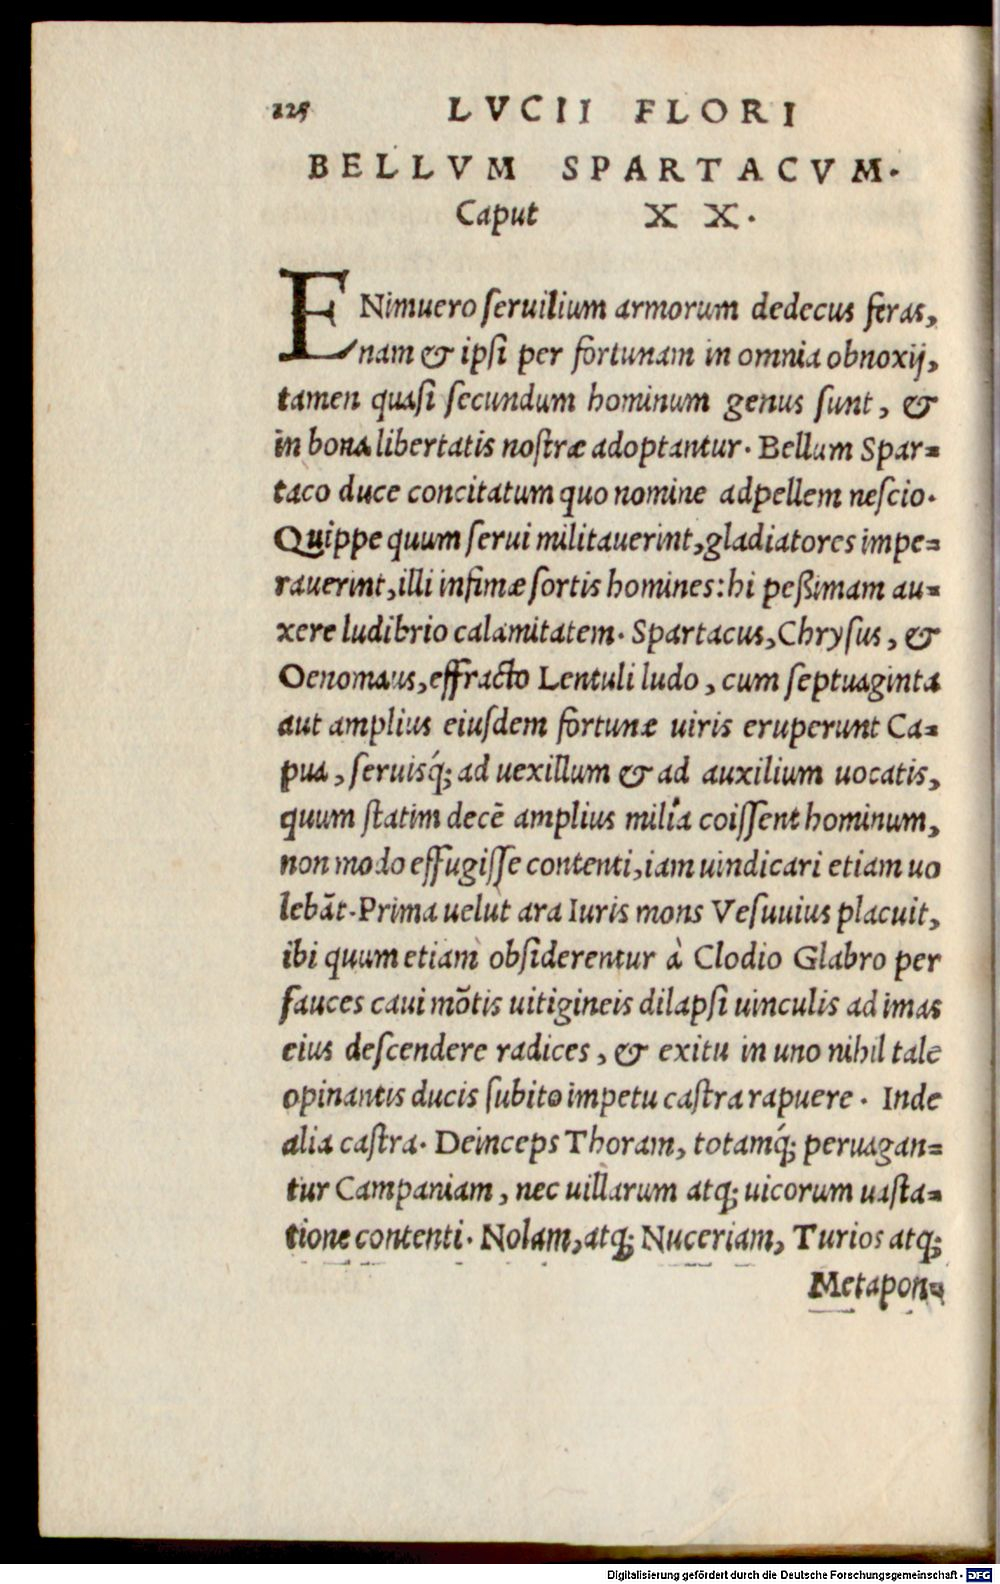 225 LVCII FLORI
BELLVM SPARTACVM.
Caput XX.
ENimuero ſeruilium armorum dedecus feras,
nam & ipſi per fortunam in omnia obnoxij,
tamen quaſi ſecundum hominum genus ſunt, &
in bona libertatis noſtræ adoptantur. Bellum Spar=
taco duce concitatum quo nomine adpellem neſcio.
Quippe quum ſerui militauerint, gladiatores impe=
rauerint, illi infimæ ſortis homines: hi peßimam au=
xere ludibrio calamitatem. Spartacus, Chryſus, &
Oenomaus, effracto Lentuli ludo, cum ſeptuaginta
aut amplius eiuſdem fortunæ uiris eruperunt Ca=
pua, ſeruisq́; ad uexillum & ad auxilium uocatis,
quum ſtatim decē amplius milia coiſſent hominum,
non modo effugiſſe contenti, iam uindicari etiam uo
lebāt. Prima uelut ara Iuris mons Veſuuius placuit,
ibi quum etiam obſiderentur à Clodio Glabro per
fauces caui mōtis uitigineis dilapſi uinculis ad imas
eius deſcendere radices, & exitu in uno nihil tale
opinantis ducis ſubito impetu caſtra rapuere. Inde
alia caſtra. Deinceps Thoram, totamq́; peruagan=
tur Campaniam, nec uillarum atq; uicorum uaſta=
tione contenti. Nolam, atq; Nuceriam, Turios atq;
Metapon=
Digitalisierung gefördert durch die Deutsche Forschungsgemeinschaft - DFG